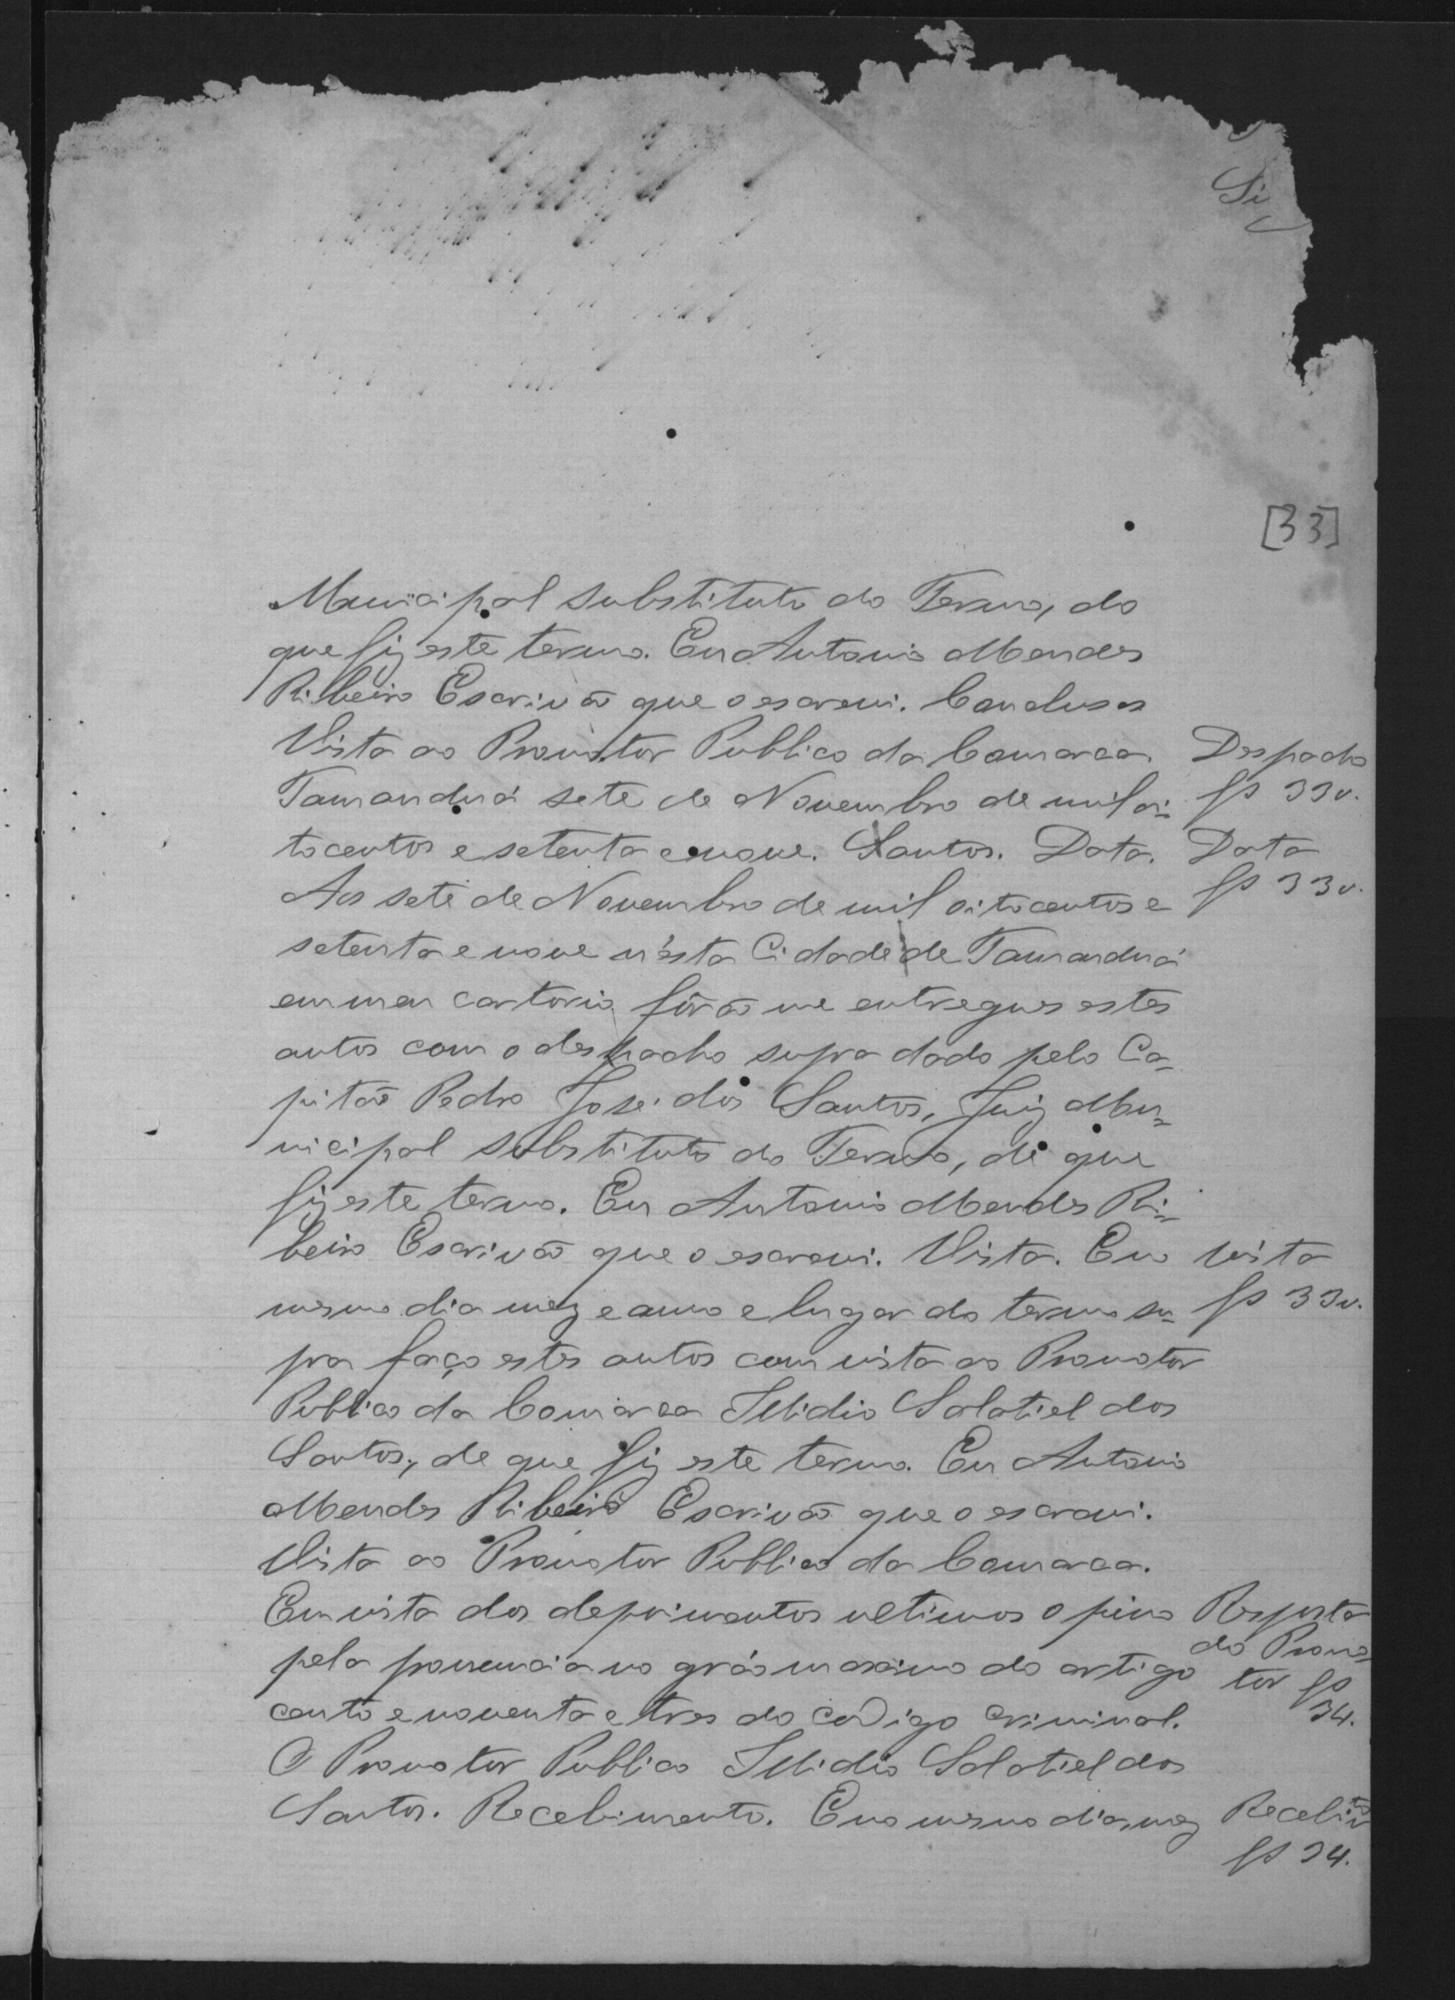 Si
[33]
Municipal substituto do Termo, do
que fiz este termo. Eu Antonio Mendes
Ribeiro Escrivão que o escrevi. Conclusos
Vista ao Promotor Publico da Comarca.
Despacho
fs 33v.
Tamanduá sete de Novembro de mil oi-
tocentos e setenta e nove. Santos. Data.
Data
fs 33v.
Aos sete de Novembro de mil oitocentos e
setenta e nove n'ésta Cidade de Tamanduá
em meu cartorio fôrão me entregues estes
autos com o despacho supra dado pelo Ca-
pitão Pedro José dos Santos, Juiz Mu-
nicipal substituto do Termo, de que
fiz este termo. Eu Antonio Mendes Ri-
beiro Escrivão que o escrevi. Vista. Em o
Vista
fs 33v.
mesmo dia mez e anno e lugar do termo su-
pra faço estes autos com vista ao Promotor
Publico da Comarca Illidio Salatiel dos
Santos, de que fiz este termo. Eu Antonio
Mendes Ribeiro Escrivão que o escrevi.
Vista ao Promotor Publico da Comarca.
Em vista dos depoimentos ultimos opino
Resposta
do Promo-
tor fs
34.
pela pronuncia no gráo maximo do artigo
cento e noventa e tres do codigo criminal.
O Promotor Publico Illidio Salatiel dos
Santos. Recebimento. E no mesmo dia, mez
Recebimto
fs 34.